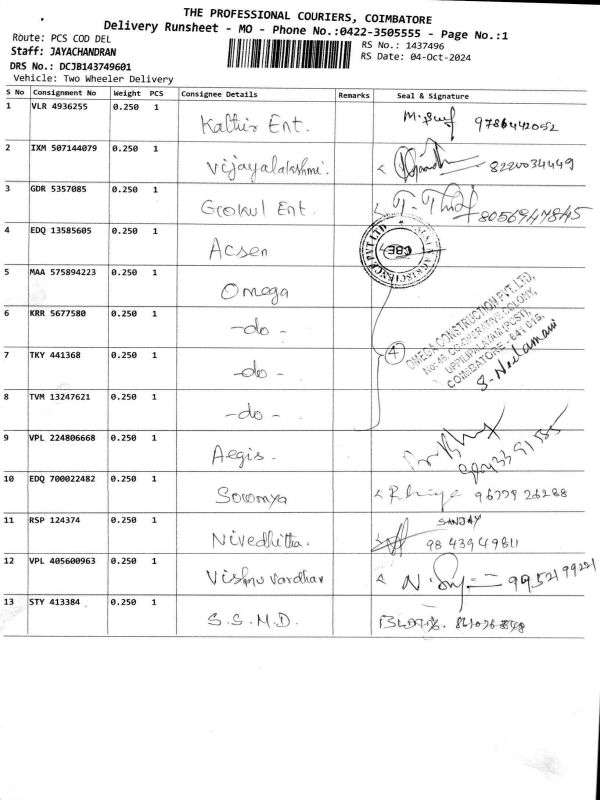 THE PROFESSIONAL COURIERS, COIMBATORE
Delivery Runsheet - MO - Phone No.:0422-3505555 - Page No.:1
Route: PCS COD DEL
RS No.: 1437496
Staff: JAYACHANDRAN
RS Date: 04-Oct-2024
DRS No.: DCJB143749601
Vehicle: Two Wheeler Delivery
S No Consignment No Weight PCS Consignee Details Remarks Seal & Signature
1 VLR 4936255 0.250 1 Kathir Ent. 9786442052
2 IXM 507144079 0.250 1 Vijayalakshmi. 8220034449
3 GDR 5357085 0.250 1 Gokul Ent. 8056947845
4 EDQ 13585605 0.250 1 Acsen
CBE
5 MAA 575894223 0.250 1 Omega
OMEGA CONSTRUCTION PVT. LTD,
No:48, CO-OPERATIVE COLONY,
UPPILIPALAYAM (POST),
COIMBATORE - 641 015.
S. Neelamani
6 KRR 5677580 0.250 1 -do-
7 TKY 441368 0.250 1 -do- 4
8 TVM 13247621 0.250 1 -do-
9 VPL 224806668 0.250 1 Aegis.
10 EDQ 700022482 0.250 1 Sowmya 96779 26288
11 RSP 124374 0.250 1 Nivedhitha. SANJAY
98 43949611
12 VPL 405600963 0.250 1 Vishnu vardhan 9952199221
13 STY 413384 0.250 1 S.S.M.D.